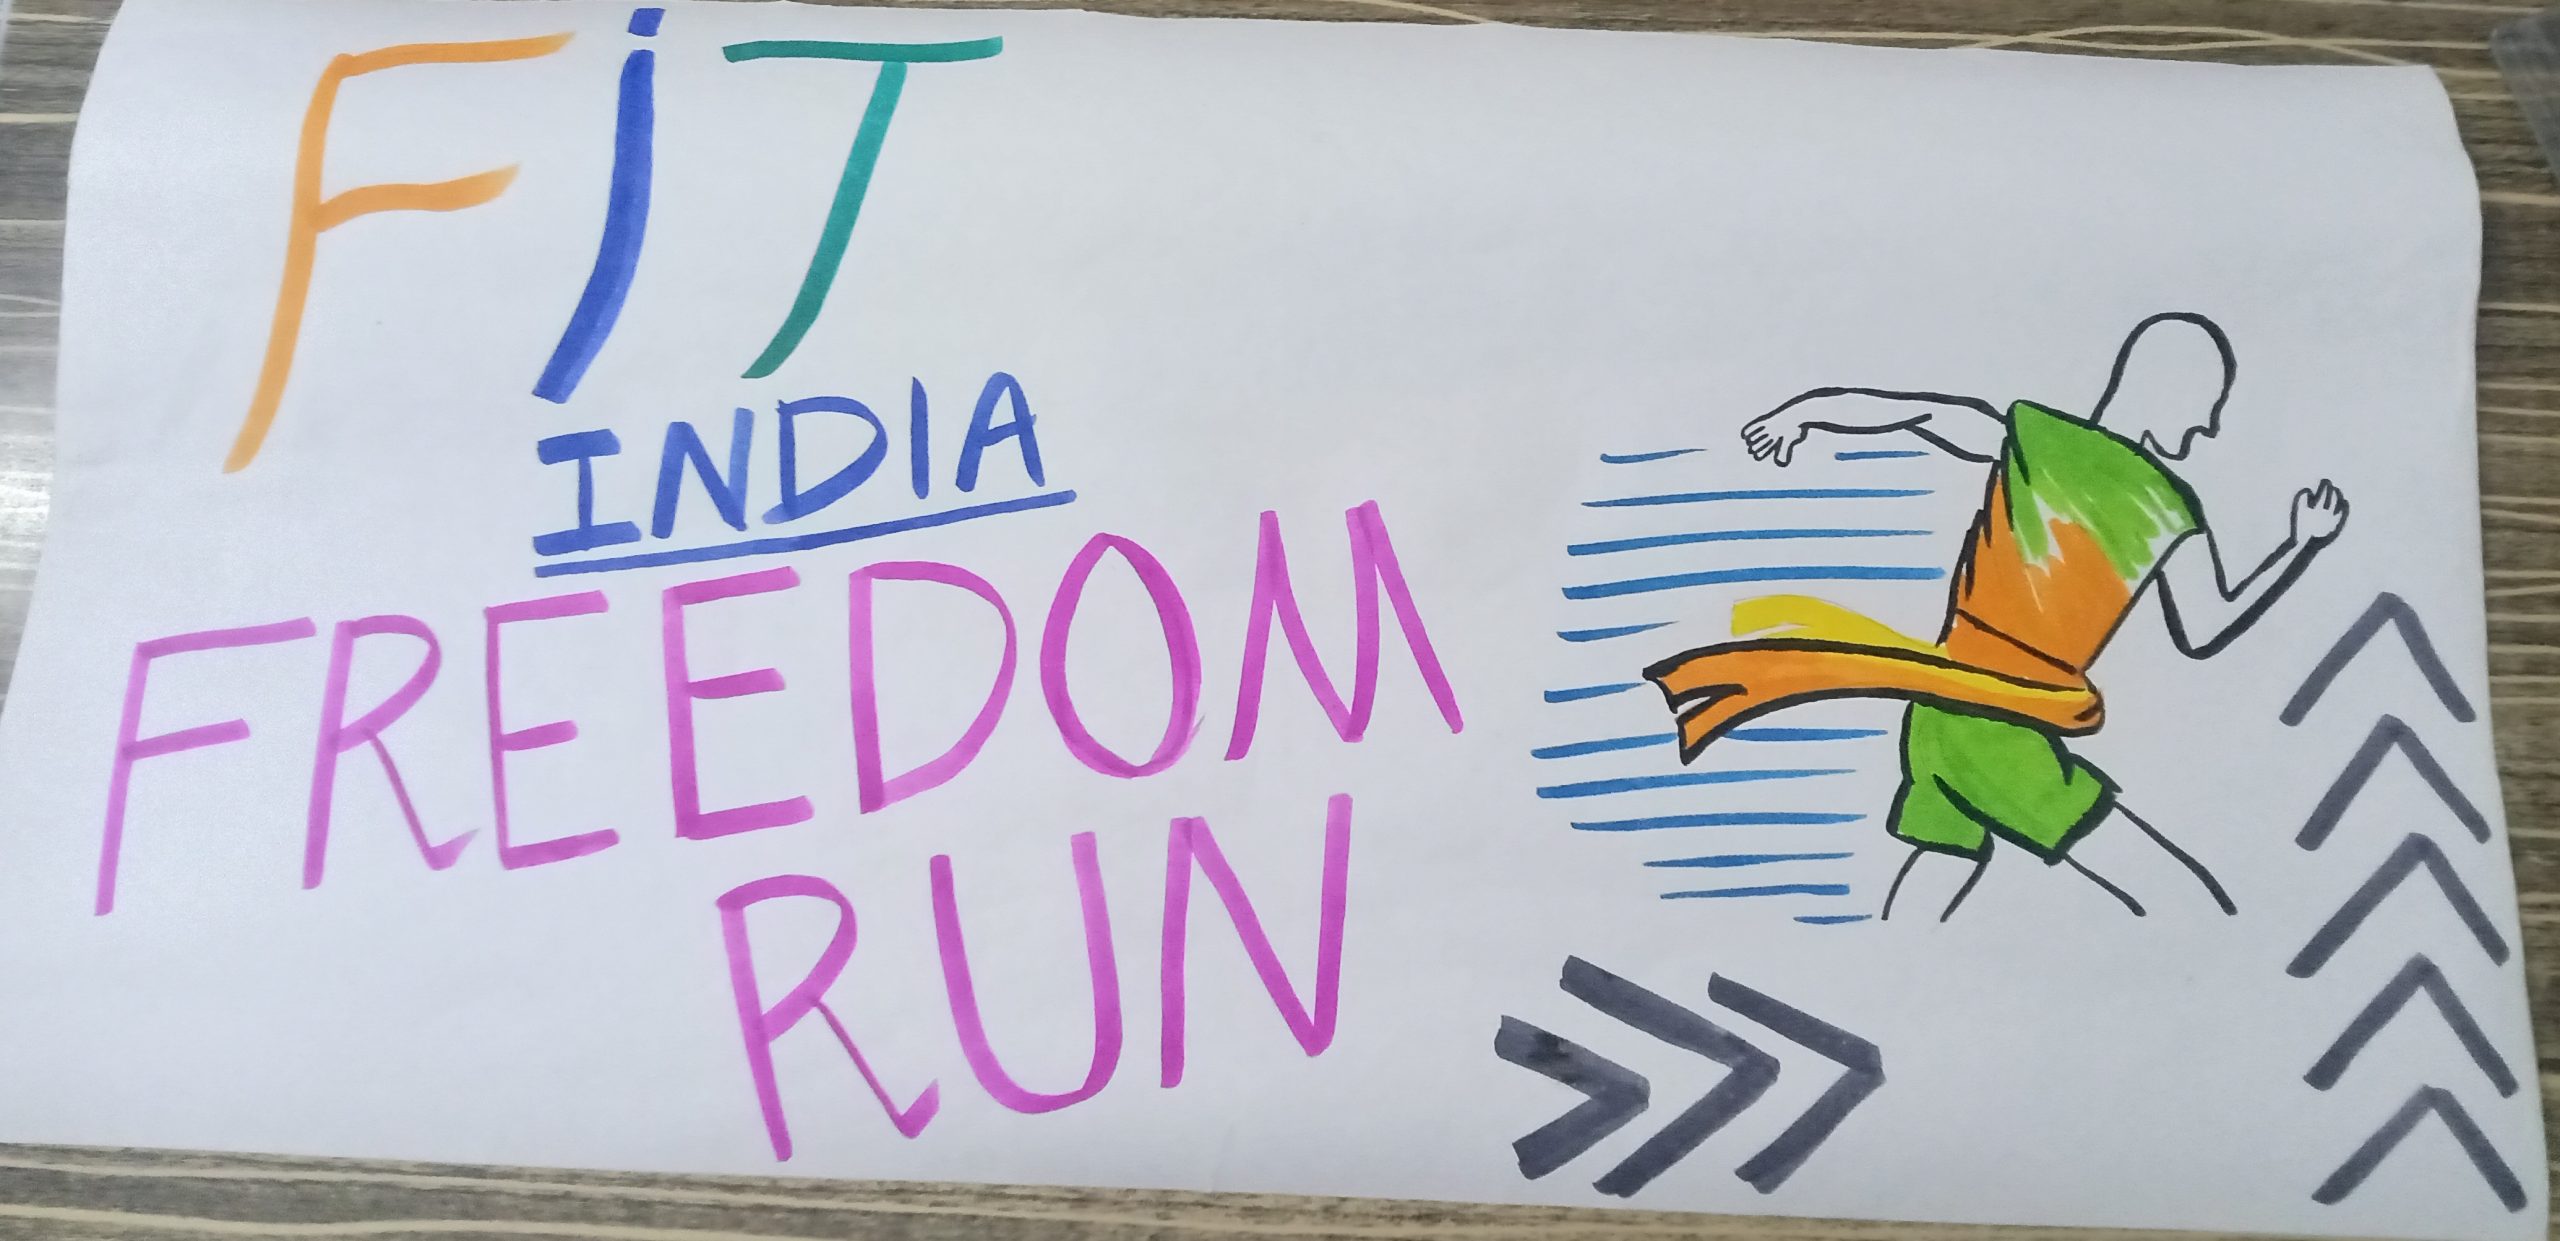 FiT
INDIA
FREEDOM
RUN